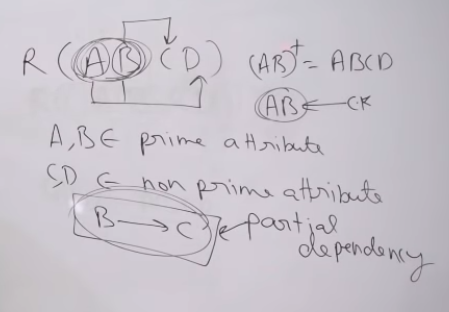 R (A B C D) (AB)⁺ = ABCD
AB ← CK
A, B ∈ prime attribute
CD ∈ non prime attribute
B → C ← partial
dependency